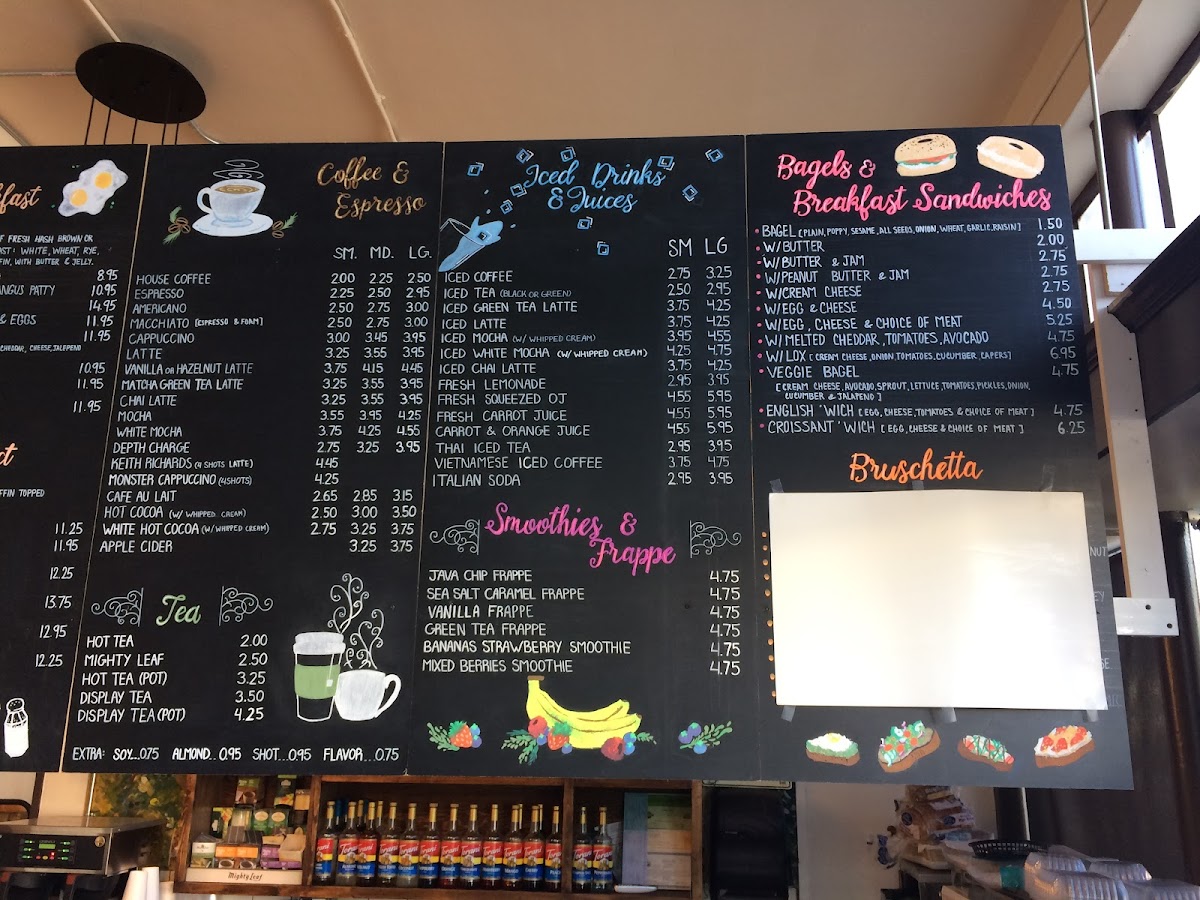 fast
F FRESH HASH BROWN OR
AST: WHITE, WHEAT, RYE,
FIN, WITH BUTTER & JELLY.
8.95
ANGUS PATTY 10.95
14.95
& EGGS 11.95
11.95
CHEDDAR, CHEESE, JALEPENO
10.95
11.95
11.95
ct
FFIN TOPPED
11.25
11.95
12.25
13.75
12.95
12.25
Coffee &
Espresso
SM. MD. LG.
HOUSE COFFEE 2.00 2.25 2.50
ESPRESSO 2.25 2.50 2.95
AMERICANO 2.50 2.75 3.00
MACCHIATO [ESPRESSO & FOAM] 2.50 2.75 3.00
CAPPUCCINO 3.00 3.45 3.95
LATTE 3.25 3.55 3.95
VANILLA OR HAZELNUT LATTE 3.75 4.15 4.45
MATCHA GREEN TEA LATTE 3.25 3.55 3.95
CHAI LATTE 3.25 3.55 3.95
MOCHA 3.55 3.95 4.25
WHITE MOCHA 3.75 4.25 4.55
DEPTH CHARGE 2.75 3.25 3.95
KEITH RICHARDS (4 SHOTS LATTE) 4.45
MONSTER CAPPUCCINO (4SHOTS) 4.25
CAFE AU LAIT 2.65 2.85 3.15
HOT COCOA (W/ WHIPPED CREAM) 2.50 3.00 3.50
WHITE HOT COCOA (W/ WHIPPED CREAM) 2.75 3.25 3.75
APPLE CIDER 3.25 3.75
Tea
HOT TEA 2.00
MIGHTY LEAF 2.50
HOT TEA (POT) 3.25
DISPLAY TEA 3.50
DISPLAY TEA (POT) 4.25
EXTRA: SOY...0.75 ALMOND...0.95 SHOT...0.95 FLAVOR...0.75
Iced Drinks
& Juices
SM LG
ICED COFFEE 2.75 3.25
ICED TEA (BLACK OR GREEN) 2.50 2.95
ICED GREEN TEA LATTE 3.75 4.25
ICED LATTE 3.75 4.25
ICED MOCHA (W/ WHIPPED CREAM) 3.95 4.55
ICED WHITE MOCHA (W/ WHIPPED CREAM) 4.25 4.75
ICED CHAI LATTE 3.75 4.25
FRESH LEMONADE 2.95 3.95
FRESH SQUEEZED OJ 4.55 5.95
FRESH CARROT JUICE 4.55 5.95
CARROT & ORANGE JUICE 4.55 5.95
THAI ICED TEA 2.95 3.95
VIETNAMESE ICED COFFEE 3.75 4.75
ITALIAN SODA 2.95 3.95
Smoothies &
Frappe
JAVA CHIP FRAPPE 4.75
SEA SALT CARAMEL FRAPPE 4.75
VANILLA FRAPPE 4.75
GREEN TEA FRAPPE 4.75
BANANAS STRAWBERRY SMOOTHIE 4.75
MIXED BERRIES SMOOTHIE 4.75
Bagels &
Breakfast Sandwiches
• BAGEL [PLAIN, POPPY, SESAME, ALL SEEDS, ONION, WHEAT, GARLIC, RAISIN] 1.50
• W/BUTTER 2.00
• W/BUTTER & JAM 2.75
• W/PEANUT BUTTER & JAM 2.75
• W/CREAM CHEESE 2.75
• W/EGG & CHEESE 4.50
• W/EGG, CHEESE & CHOICE OF MEAT 5.25
• W/ MELTED CHEDDAR, TOMATOES, AVOCADO 4.75
• W/ LOX [CREAM CHEESE, ONION, TOMATOES, CUCUMBER, CAPERS] 6.95
• VEGGIE BAGEL 4.75
[CREAM CHEESE, AVOCADO, SPROUT, LETTUCE, TOMATOES, PICKLES, ONION,
CUCUMBER & JALAPENO]
• ENGLISH 'WICH [EGG, CHEESE, TOMATOES & CHOICE OF MEAT] 4.75
• CROISSANT 'WICH [EGG, CHEESE & CHOICE OF MEAT] 6.25
Bruschetta
NUT
EY
SE
Mighty Leaf
Torani
Torani
Torani
Torani
Torani
Torani
Torani
Torani
Torani
Torani